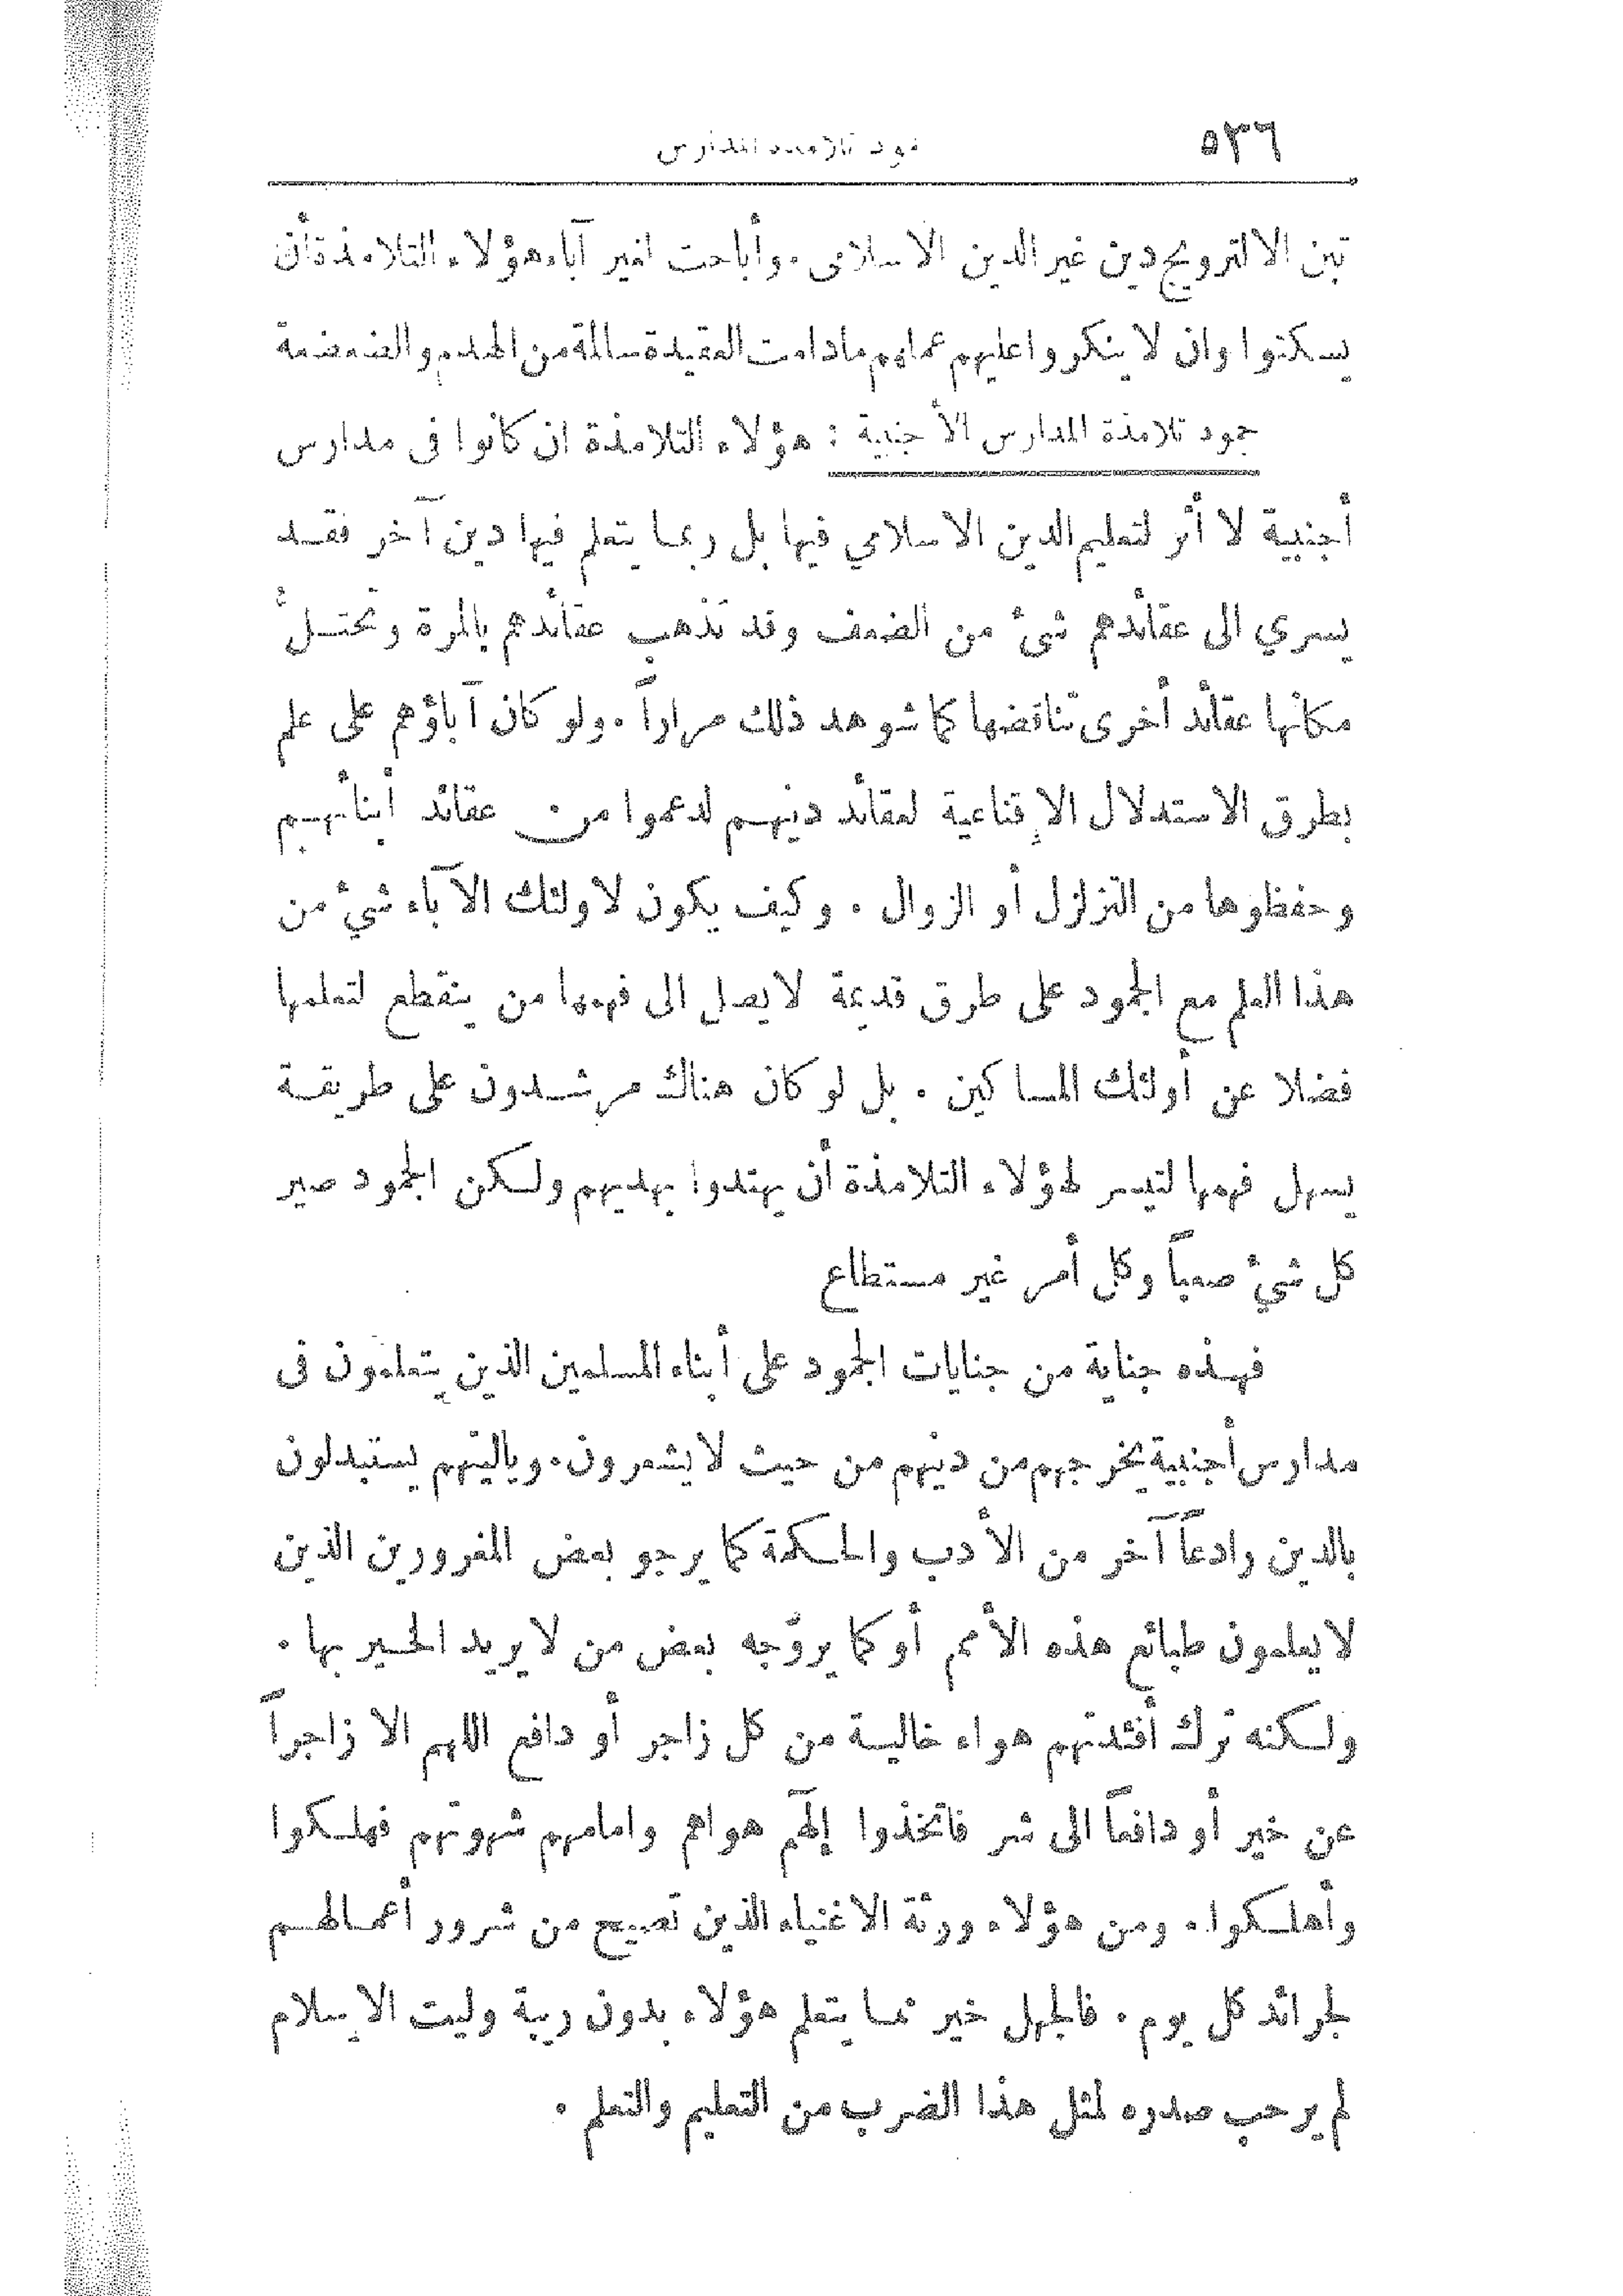 ٥٣٦
تبن الا لترويج دين غير الدين الاسلامى . وأباحت لغير آباء هؤلاء التلامذة أن
يسكتوا وان لا ينكروا عليهم عملهم مادامت العقيدة سالمة من الهدم والضعضعة
جمود تلامذة المدارس الأجنبية : هؤلاء التلامذة ان كانوا فى مدارس
أجنبية لا أثر لتعليم الدين الاسلامي فيها بل ربما يتعلم فيها دين آخر فقد
يسري الى عقائدهم شئ من الضعف وقد تذهب عقائدهم بالمرة وتحتل
مكانها عقائد أخرى تناقضها كما شوهد ذلك مراراً . ولو كان آباؤهم على علم
بطرق الاستدلال الإقناعية لعقائد دينهم لدعموا من عقائد أبنائهم
وحفظوها من التزلزل أو الزوال . وكيف يكون لاولئك الآباء شئ من
هذا العلم مع الجمود على طرق قديمة لا يصل الى فهمها من ينقطع لتعلمها
فضلا عن أولئك المساكين . بل لو كان هناك مرشدون على طريقة
يسهل فهمها لتيسر لهؤلاء التلامذة أن يهتدوا بهديهم ولكن الجمود صير
كل شئ صعباً وكل أمر غير مستطاع
فهذه جناية من جنايات الجمود على أبناء المسلمين الذين يتعلمون فى
مدارس أجنبية يخرجهم من دينهم من حيث لا يشعرون . وياليتهم يستبدلون
بالدين رادعاً آخر من الأدب والحكمة كما يرجو بعض المغرورين الذين
لا يعلمون طبائع هذه الأمم أو كما يروّجه بعض من لا يريد الخير بها .
ولكنه ترك أفئدتهم هواء خالية من كل زاجر أو دافع اللهم الا زاجراً
عن خير أو دافعاً الى شر فاتخذوا إلههم هواهم وامامهم شهوتهم فهلكوا
وأهلكوا . ومن هؤلاء ورثة الاغنياء الذين تصيح من شرور أعمالهم
لجرائد كل يوم . فالجهل خير مما يتعلم هؤلاء بدون ريبة وليت الاسلام
لم يرحب صدره لمثل هذا الضرب من التعليم والتعلم .